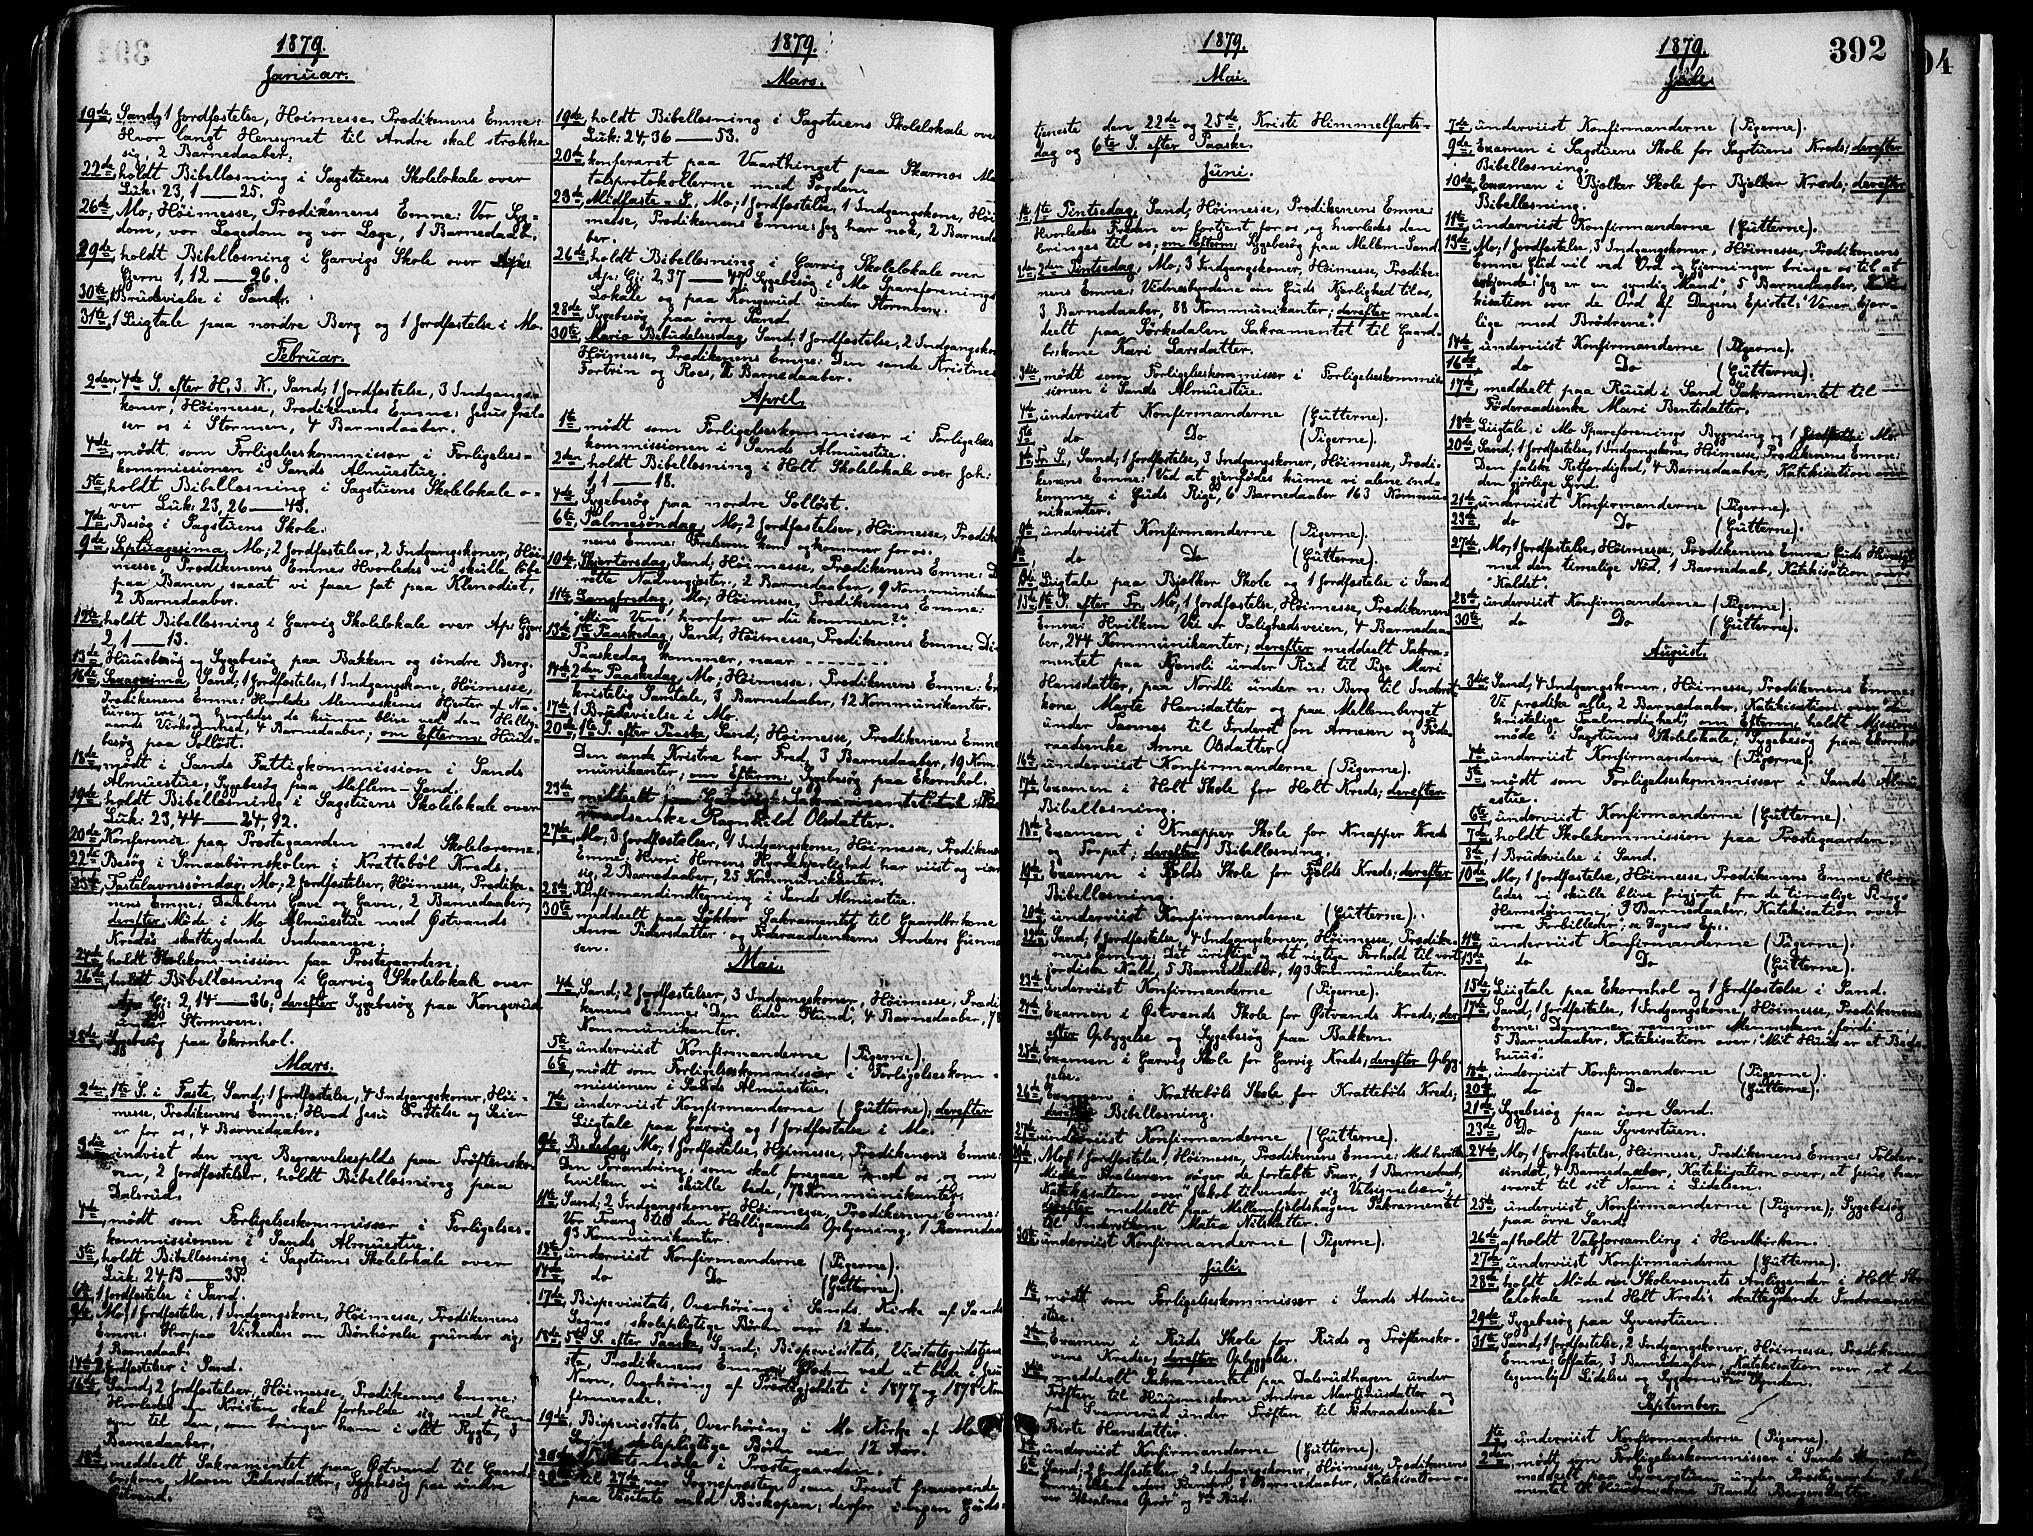 1879.
Januar.
19de, Sand, 1 Jordfæstelse, Høimesse, Prædikenens Emne:
Hvor langt Hensynet til Andre skal strække
sig, 2 Barnedaaber.
22de, holdt Bibellæsning i Sagstuens Skolelokale over
Luk: 23, 1 — 25.
26de, Mo; Høimesse, Prædikenens Emne: Vor Syg-
dom, vor Lægedom og vor Læge, 1 Barnedaab.
29de, holdt Bibellæsning i Garvigs Skole over Ap:
Gjern: 1, 12 — 26.
30te, 1 Brudevielse i Sand.
31te, 1 Liigtale paa nordre Berg og 1 Jordfæstelse i Mo.
Februar.
2den, 4de S. efter H. 3. K., Sand, 1 Jordfæstelse, 3 Indgangs-
koner, Høimesse, Prædikenens Emne: Jesus frel-
ser os i Stormen, 4 Barnedaaber.
4de, mødt som Forligelseskommissær i Forligelses-
kommissionen i Sands Almuestue.
5te, holdt Bibellæsning i Sagstuens Skolelokale o-
ver Luk: 23, 26 — 43.
7de, Besøg i Sagstuens Skole.
9de, Septuagesima, Mo; 2 Jordfæstelser, 2 Indgangskoner, Høi-
messe, Prædikenens Emne: Hvorledes vi skulle løbe
paa Banen, saaat vi faae fat paa Klenodiet,
2 Barnedaaber.
12te, holdt Bibellæsning i Garvig Skolelokale over Ap: Gjer:
2, 1 — 13.
13de, Huusbesøg og Sygebesøg paa Bakken og søndre Berg.
16de, Sexagesima, Sand, 1 Jordfæstelse, 1 Indgangskone, Høimesse,
Prædikenens Emne: Hvorledes Menneskenes Hjerter af Na-
turen er, og hvorledes de kunne blive ved den Hellig-
aands Virksomhed, 4 Barnedaaber; om Efterm: Huus-
besøg paa Solløst.
18de, mødt i Sands Fattigkommission i Sands
Almuestue; Sygebesøg paa Mellem-Sand.
19de, holdt Bibellæsning i Sagstuens Skolelokale over
Luk: 23, 44 — 24, 12.
20de, Konference paa Præstegaarden med Skolelærerne.
22de, Besøg i Smaabørnskolen i Kratteböl Kreds.
23de, Fastelavnssøndag, Mo; 2 Jordfæstelser, Høimesse, Prædike-
nens Emne: Daabens Gave og Gavn, 2 Barnedaaber;
derefter Møde i Mo Almuestue med Østvands
Kreds's skatteydende Indvaanere.
24de, holdt Skolekommission paa Præstegaarden.
26de, holdt Bibellæsning i Garvig Skolelokale over
Ap: Gj: 2, 14 — 36; derefter Sygebesøg paa Kongerud
under Stormoen.
28de, Sygebesøg paa Ekornhol.
Mars.
2den, 1ste S. i Faste, Sand, 1 Jordfæstelse, 4 Indgangskoner, Høi-
messe, Prædikenens Emne: Hvad Jesu Fristelse og Seier
er for os, 4 Barnedaaber.
3die, indviet den nye Begravelsesplads paa Trøftensko-
ven, 2 Jordfæstelser, holdt Bibellæsning paa
Dalsrud.
4de, mødt som Forligelseskommissær i Forligelses-
kommissionen i Sands Almuestue.
5te, holdt Bibellæsning i Sagstuens Skolelokale over
Luk: 24, 13 — 35.
6te, 1 Jordfæstelse i Sand.
9de, Mo, 1 Jordfæstelse, 1 Indgangskone, Høimesse, Prædikenens
Emne: Hvorpaa Visheden om Bønhørelse grunder sig,
1 Barnedaab.
14de, 2 Jordfæstelser i Sand.
16de, Sand; 2 Jordfæstelser, Høimesse, Prædikenens Emne:
Hvorledes en Kristen skal forholde sig med Hen-
syn til den, som bringer ham i slet Rygte, 3
Barnedaaber.
18de, meddeelt Sakramentet paa Østvand til Gaard-
brukone Maren Pedersdatter, Sygebesøg paa
Østvand.
1879.
Mars.
19de, holdt Bibellæsning i Sagstuens Skolelokale over
Luk: 24, 36 — 53.
20de, konfereret paa Vaarthinget paa Skarnes Ma-
talsprotokollerne med Fogden.
23de, Midfaste-S., Mo; 1 Jordfæstelse, 1 Indgangskone, Høi-
messe, Prædikenens Emne: Jeg har nok, 2 Barnedaa-
ber.
26de, holdt Bibellæsning i Garvig Skolelokale over
Ap: Gj: 2, 37 — 47; Sygebesøg i Mo Spareforenings
Lokale og paa Kongerud under Stormoen.
28de, Sygebesøg paa øvre Sand.
30te, Mariæ Bebudelsesdag, Sand, 1 Jordfæstelse, 2 Indgangsko-
Høimesse, Prædikenens Emne: Den sande Kristnes
Fortrin og Roes, 2 Barnedaaber.
April.
1ste, mødt som Forligelseskommissær i Forligelses
kommissionen i Sands Almuestue.
2den, holdt Bibellæsning i Holt Skolelokale over Joh:
1, 1 — 18.
4de, Sygebesøg paa nordre Solløst.
6te, Palmesøndag, Mo; 2 Jordfæstelser, Høimesse, Prædike-
nens Emne: Frelseren kom og kommer for os.
10de, Skjertorsdag, Sand, Høimesse, Prædikenens Emne: De
rette Nadvergjæster, 2 Barnedaaber, 9 Kommunikan-
11te, Langfredag, Mo; Høimesse, Prædikenens Emne:
"Min Ven! hvorfor er du kommen?"
13de, 1ste Paaskedag, Sand, Høimesse, Prædikenens Emne: Din
Paaskedag kommer, naar -------
14de, 2den Paaskedag, Mo, Høimesse, Prædikenens Emne: En
kristelig Samtale, 3 Barnedaaber, 12 Kommunikanter.
17de, 1 Brudevielse i Mo.
20de, 1ste S. efter Paaske, Sand; Høimesse, Prædikenens Emne:
Den sande Kristne har Fred, 3 Barnedaaber, 19 Kom-
munikanter; om Efterm: Sygebesøg paa Ekornhol.
23de, meddeelt paa Sakramentet til
raadsenke Ragnhild Olsdatter.
27de, Mo, 3 Jordfæstelser, 1 Indgangskone, Høimesse, Prædikenens
Emne: Hvori Herrens Hyrdekjerlighed har viist og viser
sig, 2 Barnedaaber, 25 Kommunikanter.
28de, Konfirmandindtegning i Sands Almuestue.
30te, meddeelt paa Løkker Sakramentet til Gaardbrkone
Anna Pedersdatter og Føderaadsenkems Anders Gunne-
sen.
Mai.
4de, Sand; 2 Jordfæstelser, 3 Indgangskoner, Høimesse, Prædi-
kenens Emne: Den liden Stund, 4 Barnedaaber, 78
Kommunikanter.
5te, underviist Konfirmanderne (Pigerne).
6te, mødt som Forligelseskommissær i Forligelseskom-
missionen i Sands Almuestue.
7de, underviist Konfirmanderne (Gutterne); derefter
Liigtale paa Garvig og 1 Jordfæstelse i Mo.
9de, Bededag, Mo, 1 Jordfæstelse, Høimesse, Prædikenens Emne:
Den Forandring, som skal foregaae med os, og om
hvilken vi skulle bede, 78 Kommunikanter.
11te, Sand; 2 Indgangskoner, Høimesse, Prædikenens Emne:
Vor Trang til den Helligaands Oplysning, 1 Barnedaab
93 Kommunikanter.
12te, underviist Konfirmanderne (Pigerne).
14de, do Do (Gutterne).
17de, Bispevisitats, Overhøring i Sands Kirke af Sands
Sogns skolepligtige Børn over 12 Aar.
18de, 5te S. efter Paaske, Sand; Bispevisitats, Visitatsgudstjene-
ste, Prædikenens Emne: Glæden ved at bede i Jesu
Navn, Overhøring af Præstegjeldets i 1877 og 1878 Kon-
firmerede.
19de, Bispevisitat, Overhøring i Mo Kirke af Mo
Sogns skolepligtige Børn over 12 Aar.
20de, i Præstegaarden.
til 27de var Sognepræsten som Provst fraværende
paa Visitats med Biskopen; derfor ingen Guds-
1879.
Mai.
tjeneste den 22de og 25de, Kristi Himmelfarts-
dag og 6te S. efter Paaske.
Juni.
1ste, 1ste Pintsedag, Sand, Høimesse, Prædikenens Emne:
Hvorledes Freden er fortjent for os, og hvorledes den
bringes til os; om Efterm: Sygebesøg paa Mellem-Sand.
2den, 2den Pintsedag, Mo, 3 Indgangskoner, Høimesse, Prædike-
nens Emne: Vidnesbyrdene om Guds Kjerlighed til os,
3 Barnedaaber, 88 Kommunikanter; derefter med-
deelt paa Sørkedalen Sakramentet til Gaard-
brkone Kari Larsdatter.
3die, mødt som Forligelseskommissær i Forligelseskommis-
sionen i Sands Almuestue.
4de, underviist Konfirmanderne (Gutterne).
5te, do Do (Pigerne).
8de, Tr. S., Sand, 1 Jordfæstelse, 3 Indgangskoner, Høimesse, Prædi-
kenens Emne: Ved at gjenfødes kunne vi alene ind-
komme i Guds Rige, 6 Barnedaaber 163 Kommu-
nikanter.
9de, underviist Konfirmanderne (Pigerne).
do Do (Gutterne).
Liigtale paa Bjølker Skole og 1 Jordfæstelse i Sand.
15de, 1ste S. efter Tr., Mo, 1 Jordfæstelse, Høimesse, Prædikenens
Emne: Hvilken Vei er Salighedsveien, 4 Barnedaa-
ber, 244 Kommunikanter; derefter meddeelt Sakra-
mentet paa Kjensli under Rud til Pige Mari
Hansdatter, paa Nordli under n: Berg til Inderst-
kone Marte Hansdatter og paa Mellemberget
under Tannes til Inderst Jon Arnesen og Føde-
raadsenke Anne Olsdatter.
16de, underviist Konfirmanderne (Pigerne).
17de, Examen i Holt Skole for Holt Kreds; derefter
Bibellæsning.
18de, Examen i Knapper Skole for Knapper Kreds
og Torpet; derefter Bibellæsning.
19de, Examen i Fjølds Skole for Fjølds Kreds; derefter
Bibellæsning.
20de, underviist Konfirmanderne (Gutterne).
22de, Sand, 1 Jordfæstelse, 4 Indgangskoner, Høimesse, Prædike-
nens Emne: Det urigtige og det rigtige Forhold til vort
jordiske Kald, 5 Barnedaaber, 193 Kommunikanter.
23de, underviist Konfirmanderne (Pigerne).
24de, Examen i Østvands Skole for Østvands Kreds; der-
efter Opbyggelse og Sygebesøg paa Bakken.
25de, Examen i Garvig Skole for Garvig Kreds; derefter Opbyg-
gelse.
26de, Examen i Krattebøls Skole for Krattebøls Kreds;
derefter Bibellæsning.
27de, underviist Konfirmanderne (Gutterne).
29de, Mo, 1 Jordfæstelse, Høimesse, Prædikenens Emne: Med hvilke
Midler Frelseren søger de fortabte Faar, 1 Barnedaab,
Katekisation over "Jakob tilvender sig Velsignelsen";
derefter meddeelt paa Mellemfjeldshagen Sakramentet
til Inderstkone Matea Nilsdatter.
30te, underviist Konfirmanderne (Pigerne).
Juli.
1ste, mødt som Forligelseskommissær i Sands Almue-
stue.
2den, Examen i Ruds Skole for Ruds og Trøftensko-
vens Kredse; derefter Opbyggelse.
3die, meddeelt Sakramentet paa Dalsrudhagen under
Trøften til Huusmkone Andrea Martinusdatter og
paa Sververud under Trøften til Føderaadsenke
Birte Hansdatter.
underviist Konfirmanderne (Gutterne).
6te, Sand; 2 Jordfæstelser, 2 Indgangskoner, Høimesse, Prædikenens
Emne: elsker eders Fiender, 8 Barnedaaber, Katekisation o-
ver Absalons Oprør og 4de Bud.
1879.
392
Juli.
7de, underviist Konfirmanderne (Pigerne).
9de, Examen i Sagstuens Skole for Sagstuens Kreds; derefter
Bibellæsning.
10de, Examen i Bjølker Skole for Bjølker Kreds; derefter
Bibellæsning.
11te, underviist Konfirmanderne (Gutterne).
13de, Mo, 1 Jordfæstelse, 3 Indgangskoner, Høimesse, Prædikenens
Emne: Gud vil ved Ord og Gjerninger bringe os til at
erkjende: "Jeg er en syndig Mand", 5 Barnedaaber, Kateki-
sation over de Ord af Dagens Epistel: "Værer kjær-
lige mod Brødrene".
14de, underviist Konfirmanderne (Pigerne).
16de, do Do (Gutterne).
17de, meddeelt paa Ruud i Sand Sakramentet til
Føderaadsenke Mari Bentsdatter.
18de, Liigtale i Mo Spareforenings Bygning og 1 Jordfæst: i Mo.
20de, Sand, 1 Jordfæstelse, 1 Indgangskone, Høimesse, Prædikenens Emne:
Den falske Retfærdighed, 4 Barnedaaber, Katekisation over
den gjørlige Synd.
21de, underviist Konfirmanderne (Pigerne).
23de, do Do (Gutterne).
27de, Mo, 1 Jordfæstelse, Høimesse, Prædikenens Emne: Guds Hensigt
med den timelige Nød, 1 Barnedaab, Katekisation over
"Kaldet".
28de, underviist Konfirmanderne (Pigerne).
30te, do Do (Gutterne).
August.
3die, Sand, 4 Indgangskoner, Høimesse, Prædikenens Emne:
Vi prædike alle, 2 Barnedaaber, Katekisation over "den
kristelige Taalmodighed"; om Efterm: holdt Missions-
møde i Sagstuens Skolelokale; Sygebesøg paa Ekornhol.
4de, underviist Konfirmanderne (Pigerne).
5te, mødt som Forligelseskommissær i Sands Almu-
estue.
6te, underviist Konfirmanderne (Gutterne).
7de, holdt Skolekommission paa Præstegaarden.
8de, 1 Brudevielse i Sand.
10de, Mo, 1 Jordfæstelse, Høimesse, Prædikenens Emne: Hvor-
ledes vi skulle blive frigjorte fra de timelige Tings
Herredømme, 3 Barnedaaber, Katekisation over
"vore Forbilleder", se Dagens Ep:.
11te, underviist Konfirmanderne (Pigerne).
13de, do Do (Gutterne).
15de, Liigtale paa Ekornhol og 1 Jordfæstelse i Sand.
17de, Sand, 1 Jordfæstelse, 1 Indgangskone, Høimesse, Prædikenens
Emne: Dommen rammer Mennesker, fordi ----,
5 Barnedaaber, Katekisation over: "Mit Huus er et Bede-
huus".
18de, underviist Konfirmanderne (Pigerne).
20de, do Do (Gutterne).
21de, Sygebesøg paa øvre Sand.
23de, Do paa Syverstuen.
24de, Mo, 1 Jordfæstelse, Høimesse, Prædikenens Emne: Tolder-
sindet, 4 Barnedaaber, Katekisation over, at Jesus har
svaret til sit Navn i Lidelsen.
25de, underviist Konfirmanderne (Pigerne); Sygebesøg
paa øvre Sand.
26de, afholdt Valgforsamling i Hovedkirken.
27de, underviist Konfirmanderne (Gutterne).
28de, holdt Møde om Skolevæsenets Anliggender i Holt Sko-
lelokale med Holt Kreds's skatteydende Indvaanere.
29de, Sygebesøg paa Syverstuen.
31te, Sand, 1 Jordfæstelse, 2 Indgangskoner, Høimesse, Prædikenens
Emne: Effata, 3 Barnedaaber, Katekisation over, at den
legemlige Lidelse og Sygdom Synden.
September.
1ste, underviist Konfirmanderne (Pigerne).
2den, mødt som Forligelseskommissær i Sands Almuestue,
meddeelt paa Syverstuen under Præstegaarden Sakra-
mentet til Huusmkone Randi Bergersdatter.